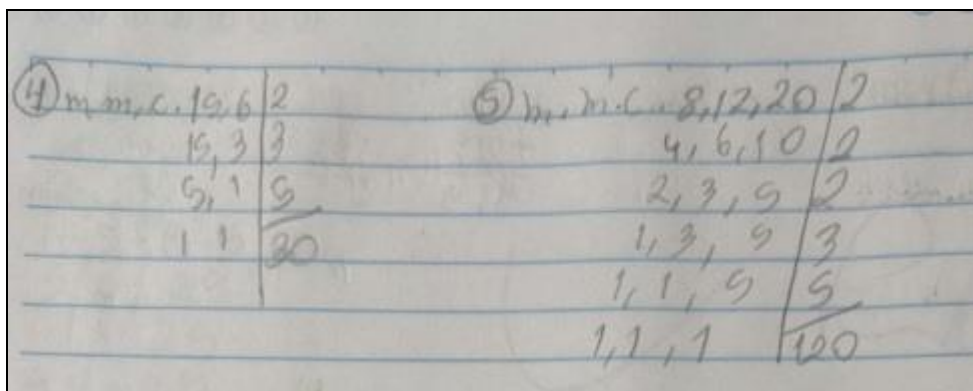 ④ m.m.c. 15,6 | 2
15,3 | 3
5,1 | 5
1 1 | 30
⑤ m.m.c. 8,12,20 | 2
4,6,10 | 2
2,3,5 | 2
1,3,5 | 3
1,1,5 | 5
1,1,1 | 120